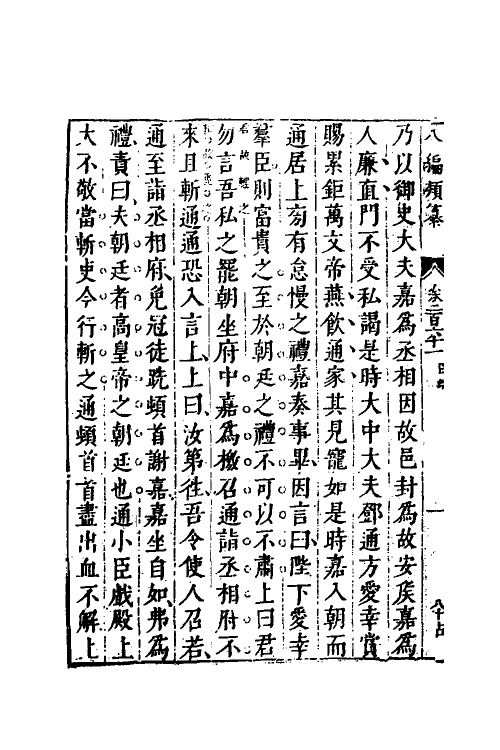 八編類纂 卷二百六十一
乃以御史大夫嘉為丞相因故邑封為故安侯嘉為
人廉直門不受私謁是時大中大夫鄧通方愛幸賞
賜累鉅萬文帝燕飲通家其見寵如是時嘉入朝而
通居上旁有怠慢之禮嘉奏事畢因言曰陛下愛幸
羣臣則富貴之至於朝廷之禮不可以不肅上曰君
勿言吾私之罷朝坐府中嘉為檄召通詣丞相府不
來且斬通通恐入言上上曰汝第徃吾令使人召若
通至詣丞相府免冠徒跣頓首謝嘉嘉坐自如弗為
禮責曰夫朝廷者高皇帝之朝廷也通小臣戲殿上
大不敬當斬吏今行斬之通頓首首盡出血不解上